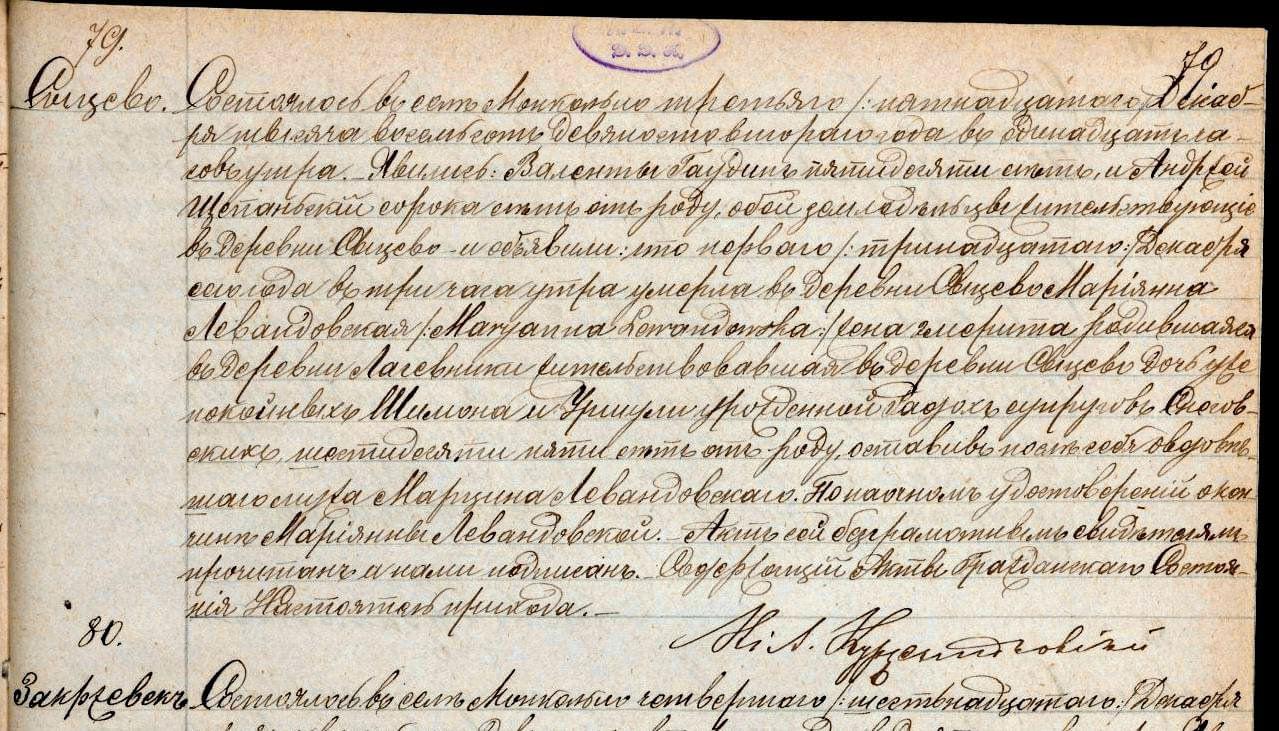 79.
70
Свщево. Состоялось въ селѣ Монкольно третьяго /: пятнадцатаго Декаб-
ря тысяча восемьсотъ девяносто втораго года въ одинадцать ча-
совъ утра. - Явились: Валенты Гаудинъ пятидесяти лѣтъ, и Андрей
Щепаньскій сорока лѣтъ отъ роду, обои земледѣльцы жительствующіе
въ деревни Свщево - и объявили: что перваго /: тринадцатаго :/ Декабря
сего года въ три часа утра умерла въ деревни Свщево Маріянна
Левандовская /: Maryanna Lewandowska :/ жена эмерита родившаяся
въ деревни Лагевники жительствовавшая въ деревни Свщево дочь уже
покойныхъ Шимона и Уршули урожденной супруговъ
скихъ, шестидесяти пяти лѣтъ отъ роду, оставивъ послѣ себя овдовѣв-
шаго мужа Марцина Левандовскаго. По наочномъ удостовереній о кон-
чинѣ Маріянны Левандовской. - Актъ сей безграмотнымъ свидѣтелямъ
прочитанъ а нами подписанъ. - Содержащій Акты Гражданскаго Состоя-
нія Настоятель прихода. -
80.
Закржевекъ Состоялось въ селѣ Монкольно четвертаго /: шестьнадцатаго :/ Декабря